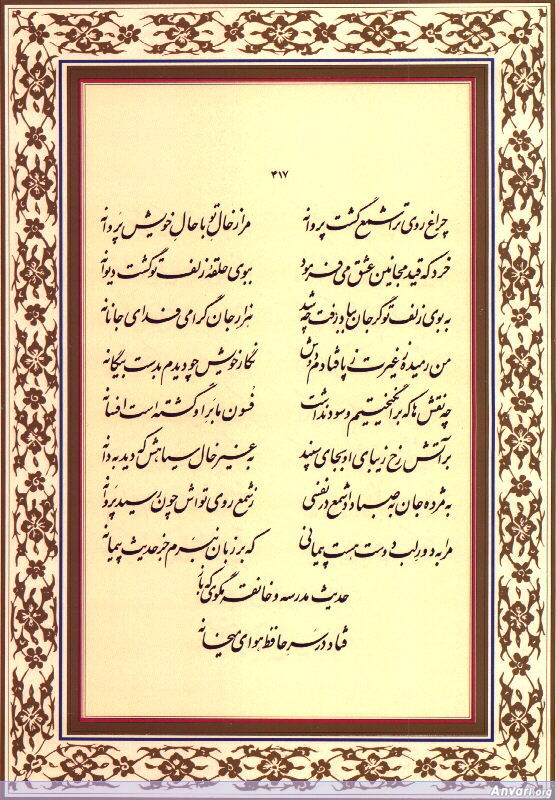 ۴۱۷
چراغ روی ترا شمع گشت پروانه مرا ز خالِ تو با حالِ خویش پَروا نه
خرد که قید مجانین عشق می فرمود ببوی حلقهٔ زلف تو گشت دیوانه
به بوی زلف تو گر جان بباد رفت چه شد هزار جان گرامی فدای جانانه
من رمیده ز غیرت ز پا فتادم دوش نگار خویش چو دیدم بدست بیگانه
چه نقش ها که برانگیختیم و سود نداشت فُسون ما بَرِ او گشته است افسانه
بر آتش رخ زیبای او بجای سپند به غیر خال سیاهش که دید به دانه
به مژده جان به صبا داد شمع در نفسی ز شمع روی تواش چون رسید پروانه
مرا به دور لب دوست هست پیمانی که بر زبان نبرم جز حدیث پیمانه
حدیث مدرسه و خانقه مگوی که باز
فتاد در سرِ حافظ هوای میخانه
Anvari.org